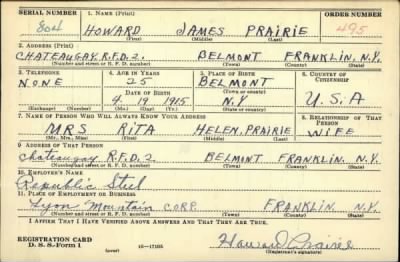 SERIAL NUMBER 1. NAME (Print) ORDER NUMBER
804 HOWARD JAMES PRAIRIE 495
(First) (Middle) (Last)
2. ADDRESS (Print)
CHATEAUGAY R.F.D. 2. BELMONT FRANKLIN, N.Y.
(Number and street or R. F. D. number) (Town) (County) (State)
3. TELEPHONE 4. AGE IN YEARS 5. PLACE OF BIRTH 6. COUNTRY OF CITIZENSHIP
NONE 25 BELMONT
DATE OF BIRTH (Town or county)
4 19 1915 N.Y U.S.A
(Exchange) (Number) (Mo.) (Day) (Yr.) (State or country)
7. NAME OF PERSON WHO WILL ALWAYS KNOW YOUR ADDRESS 8. RELATIONSHIP OF THAT PERSON
MRS RITA HELEN, PRAIRIE WIFE
(Mr., Mrs., Miss) (First) (Middle) (Last)
9. ADDRESS OF THAT PERSON
Chateaugay R.F.D. 2. BELMONT FRANKLIN, N.Y.
(Number and street or R. F. D. number) (Town) (County) (State)
10. EMPLOYER'S NAME
Republic Steel
11. PLACE OF EMPLOYMENT OR BUSINESS
Lyon Mountain CORP. FRANKLIN. N.Y.
(Number and street or R. F. D. number) (Town) (County) (State)
I AFFIRM THAT I HAVE VERIFIED ABOVE ANSWERS AND THAT THEY ARE TRUE.
REGISTRATION CARD
D. S. S. Form 1 (over) 16-17105 Howard Prairie
(Registrant's signature)